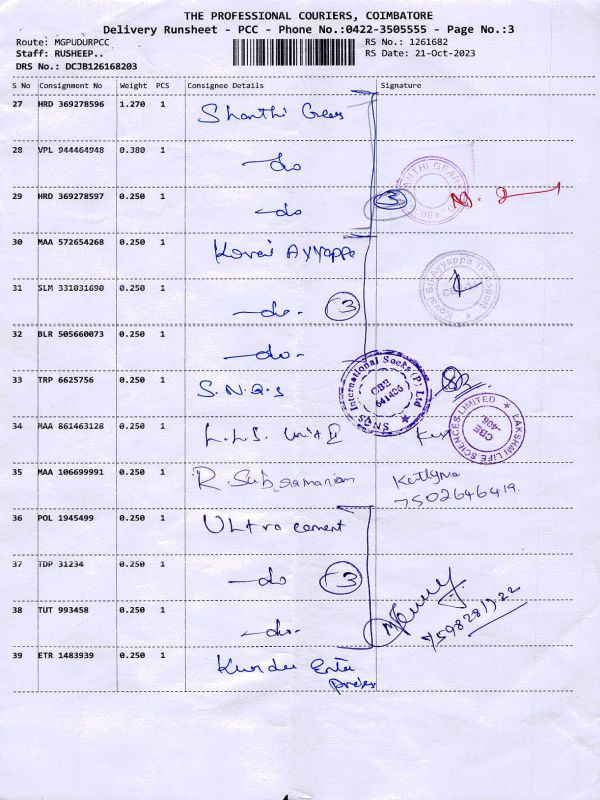 THE PROFESSIONAL COURIERS, COIMBATORE
Delivery Runsheet - PCC - Phone No.:0422-3505555 - Page No.:3
Route: MGPUDURPCC
RS No.: 1261682
Staff: RUSHEEP..
RS Date: 21-Oct-2023
DRS No.: DCJB126168203
S No Consignment No Weight PCS Consignee Details Signature
27 HRD 369278596 1.270 1 Shanthi Gears
28 VPL 944464948 0.380 1 -do
29 HRD 369278597 0.250 1 -do 3
30 MAA 572654268 0.250 1 Kovai Ayyappa
31 SLM 331031690 0.250 1 -do- 3
32 BLR 505660073 0.250 1 -do-
33 TRP 6625756 0.250 1 S.N.Q.S
SNQS International Socks (P) Ltd CBE 641405
34 MAA 861463128 0.250 1 L.L.S. Unit II
LAKSHMI LIFE SCIENCES LIMITED CBE-
35 MAA 106699991 0.250 1 R Subramanian
7502646419.
36 POL 1945499 0.250 1 ULtra cement
37 TDP 31234 0.250 1 -do 3
38 TUT 993458 0.250 1 -do-
39 ETR 1483939 0.250 1